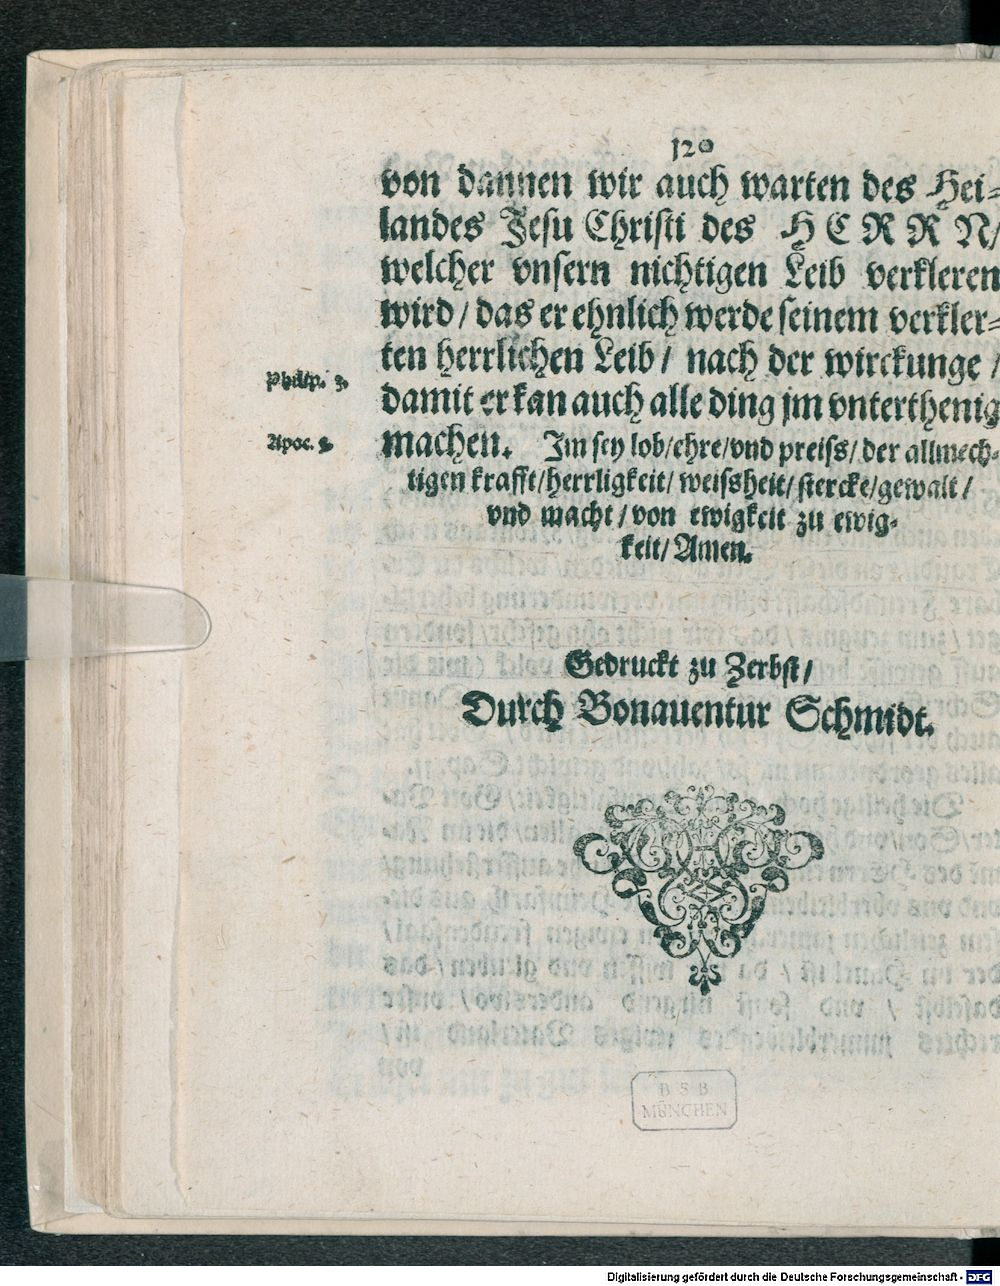 120
von dannen wir auch warten des Hei-
landes Jesu Christi des HERRN/
welcher vnsern nichtigen Leib verkleren
wird/ das er ehnlich werde seinem verkler-
ten herrlichen Leib/ nach der wirckunge/
Philip. 3.
damit er kan auch alle ding jm vnterthenig
Apoc.
machen. Im sey lob/ehre/vnd preiss/ der allmech-
tigen krafft/herrligkeit/ weissheit/ stercke/gewalt/
vnd macht/ von ewigkeit zu ewig-
keit/ Amen.
Gedruckt zu Zerbst/
Durch Bonauentur Schmidt.
BSB
MÜNCHEN
Digitalisierung gefördert durch die Deutsche Forschungsgemeinschaft - DFG